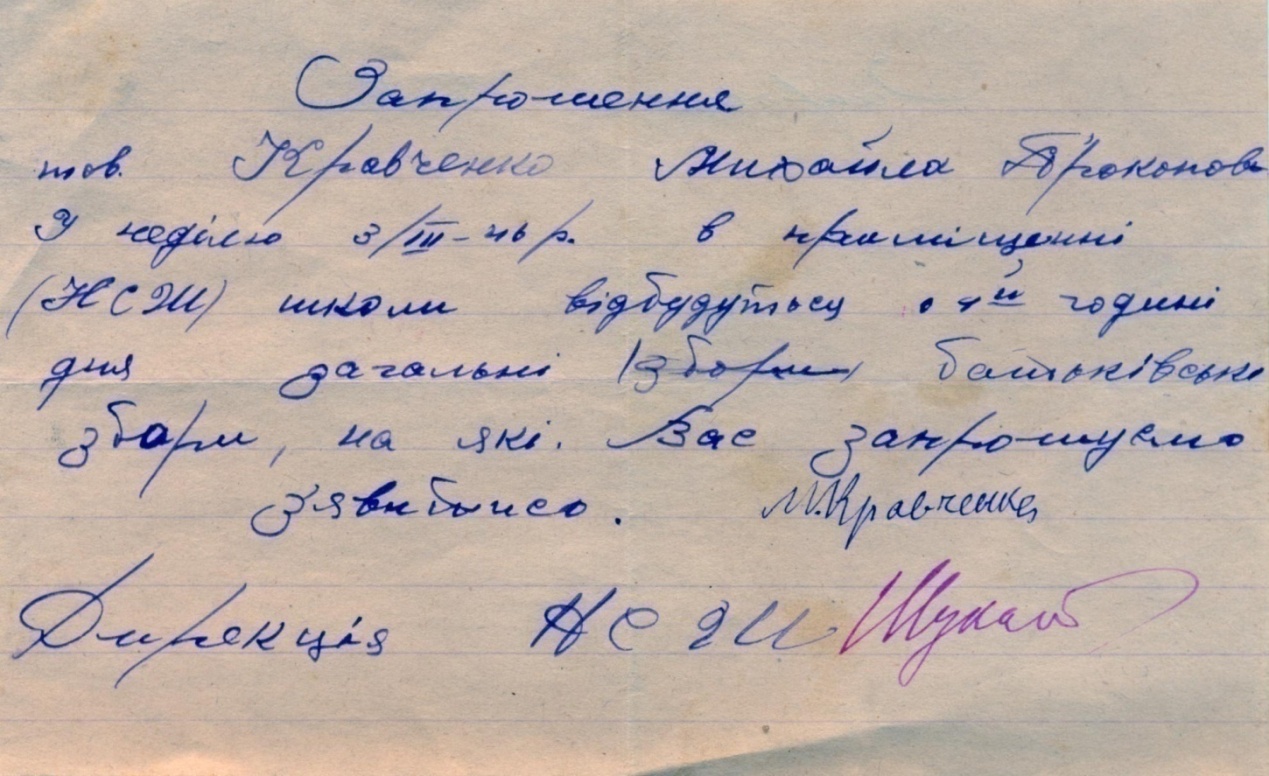 Запрошення
тов. Кравченко Михайла Прокопов
У неділю 3/III-46 р. в приміщенні
(НСШ) школи відбудуться о ій годині
дня загальні (збори) батьківські
збори, на які. Вас запрошуємо
зявитися. М.Кравченко
Дирекція НСШ